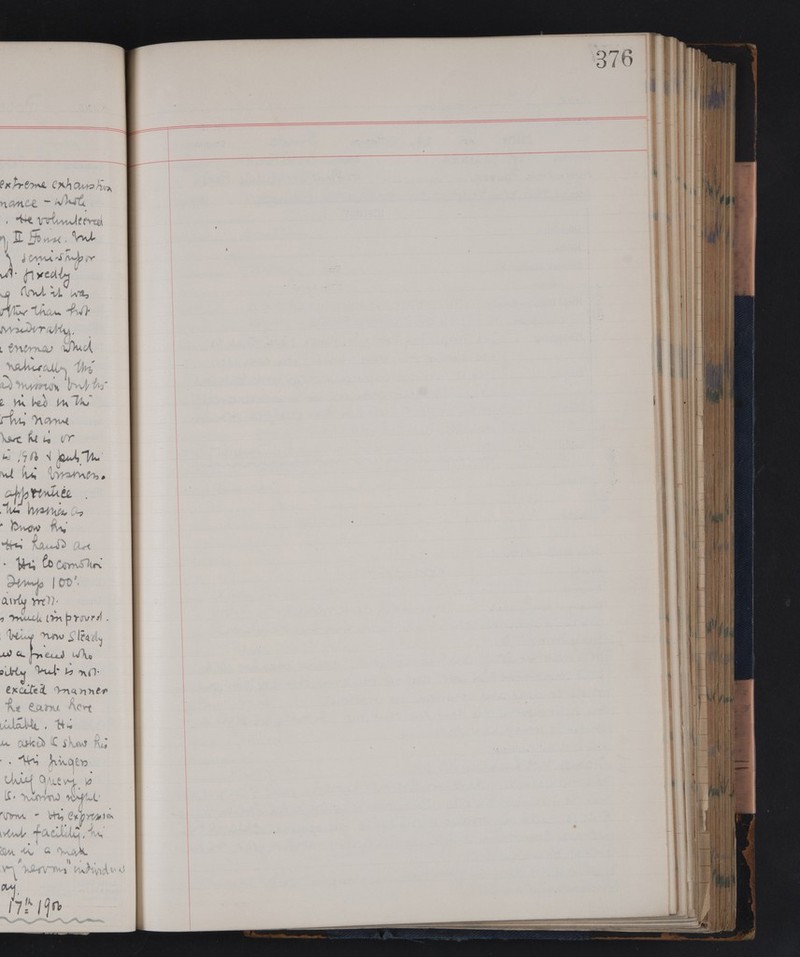 extreme exhaustion
nance - whole
. He volunteered
II House. but
semistupor
not. fixedly
but it was
than hot
considerably.
enema which
naturally this
admission but his
in bed in the
his name
here he is or
is 1906 & puts the
his business.
apprentice .
his business as
know his
His hands are
. His locomotion
Temp 100°.
airly well.
s much improved.
being now steady
a friend who
sibly but is not
excited manner
he came here
. His
asked to show his
. His fingers
chief query is
to-morrow night
- His expression
facility. his
is a man
"nervous" individual
ay.
17th 1906
376